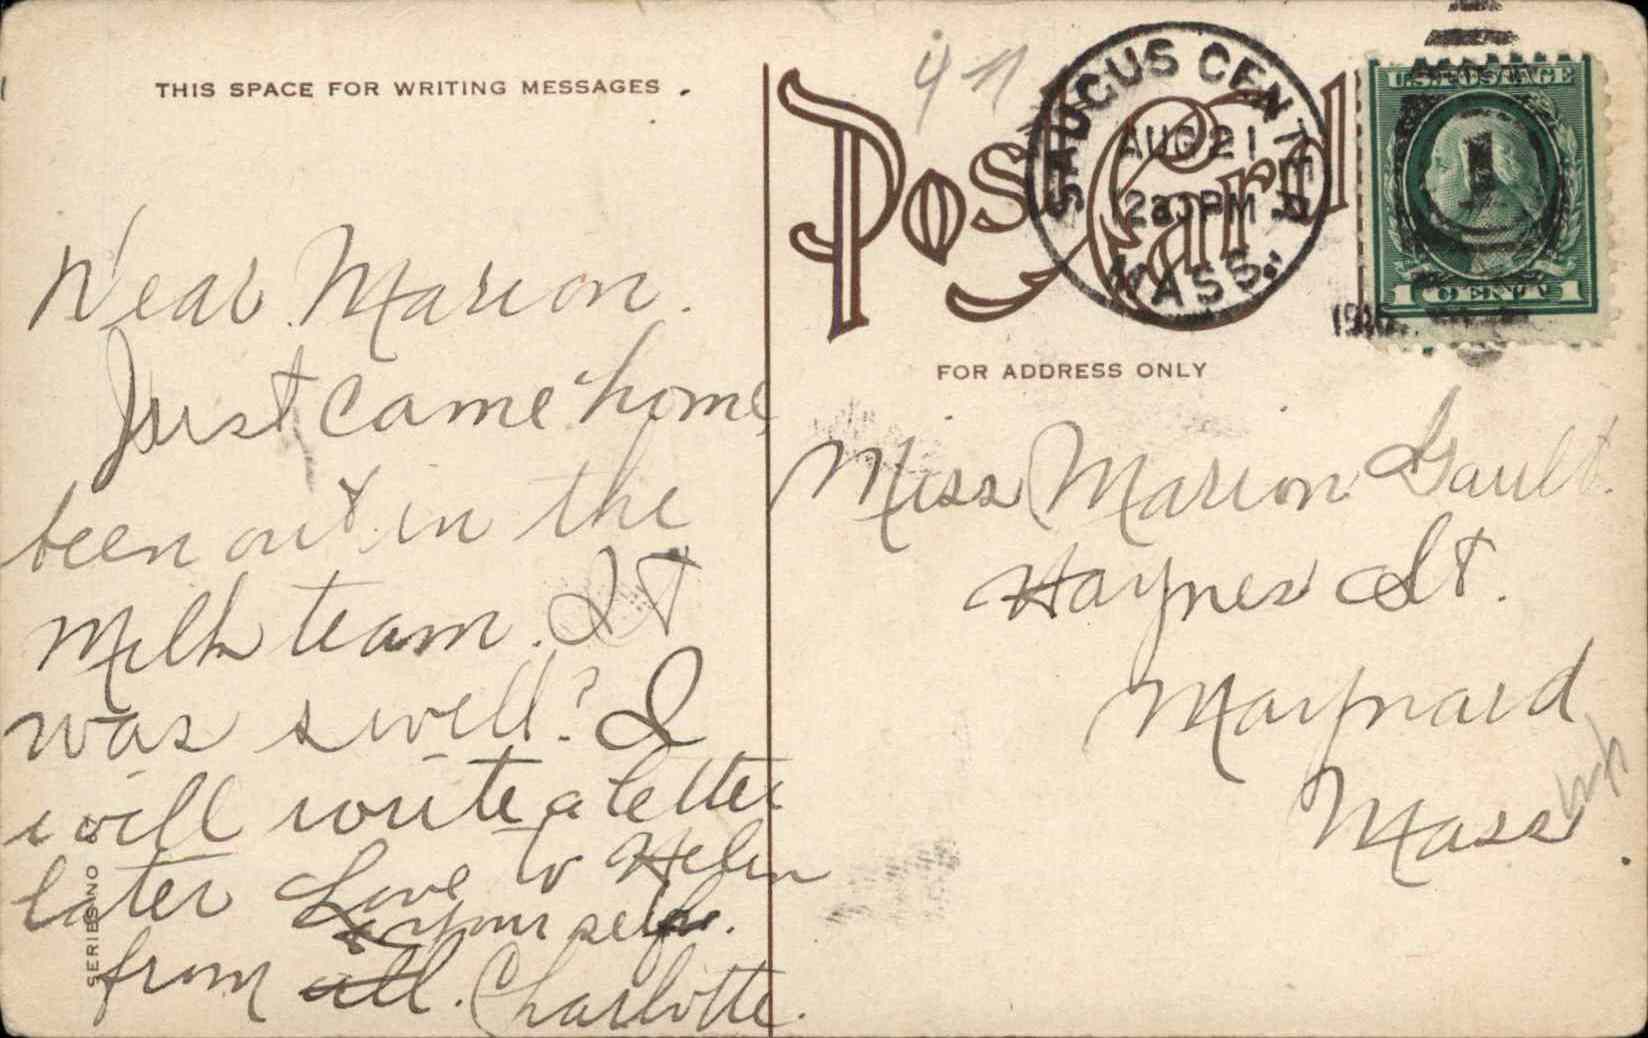 THIS SPACE FOR WRITING MESSAGES
Dear Marion.
Just came home
been out in the
milk team. It
was swell? I
will write a letter
later Love to Helen
& your self.
from all. Charlotte.
SERIES NO
Post Card
SAUCUS CENTER
AUG 21
1230PM
MASS.
U.S. POSTAGE
1
1 CENT 1
FOR ADDRESS ONLY
Miss Marion Gault.
Haynes St.
Maynard
Mass